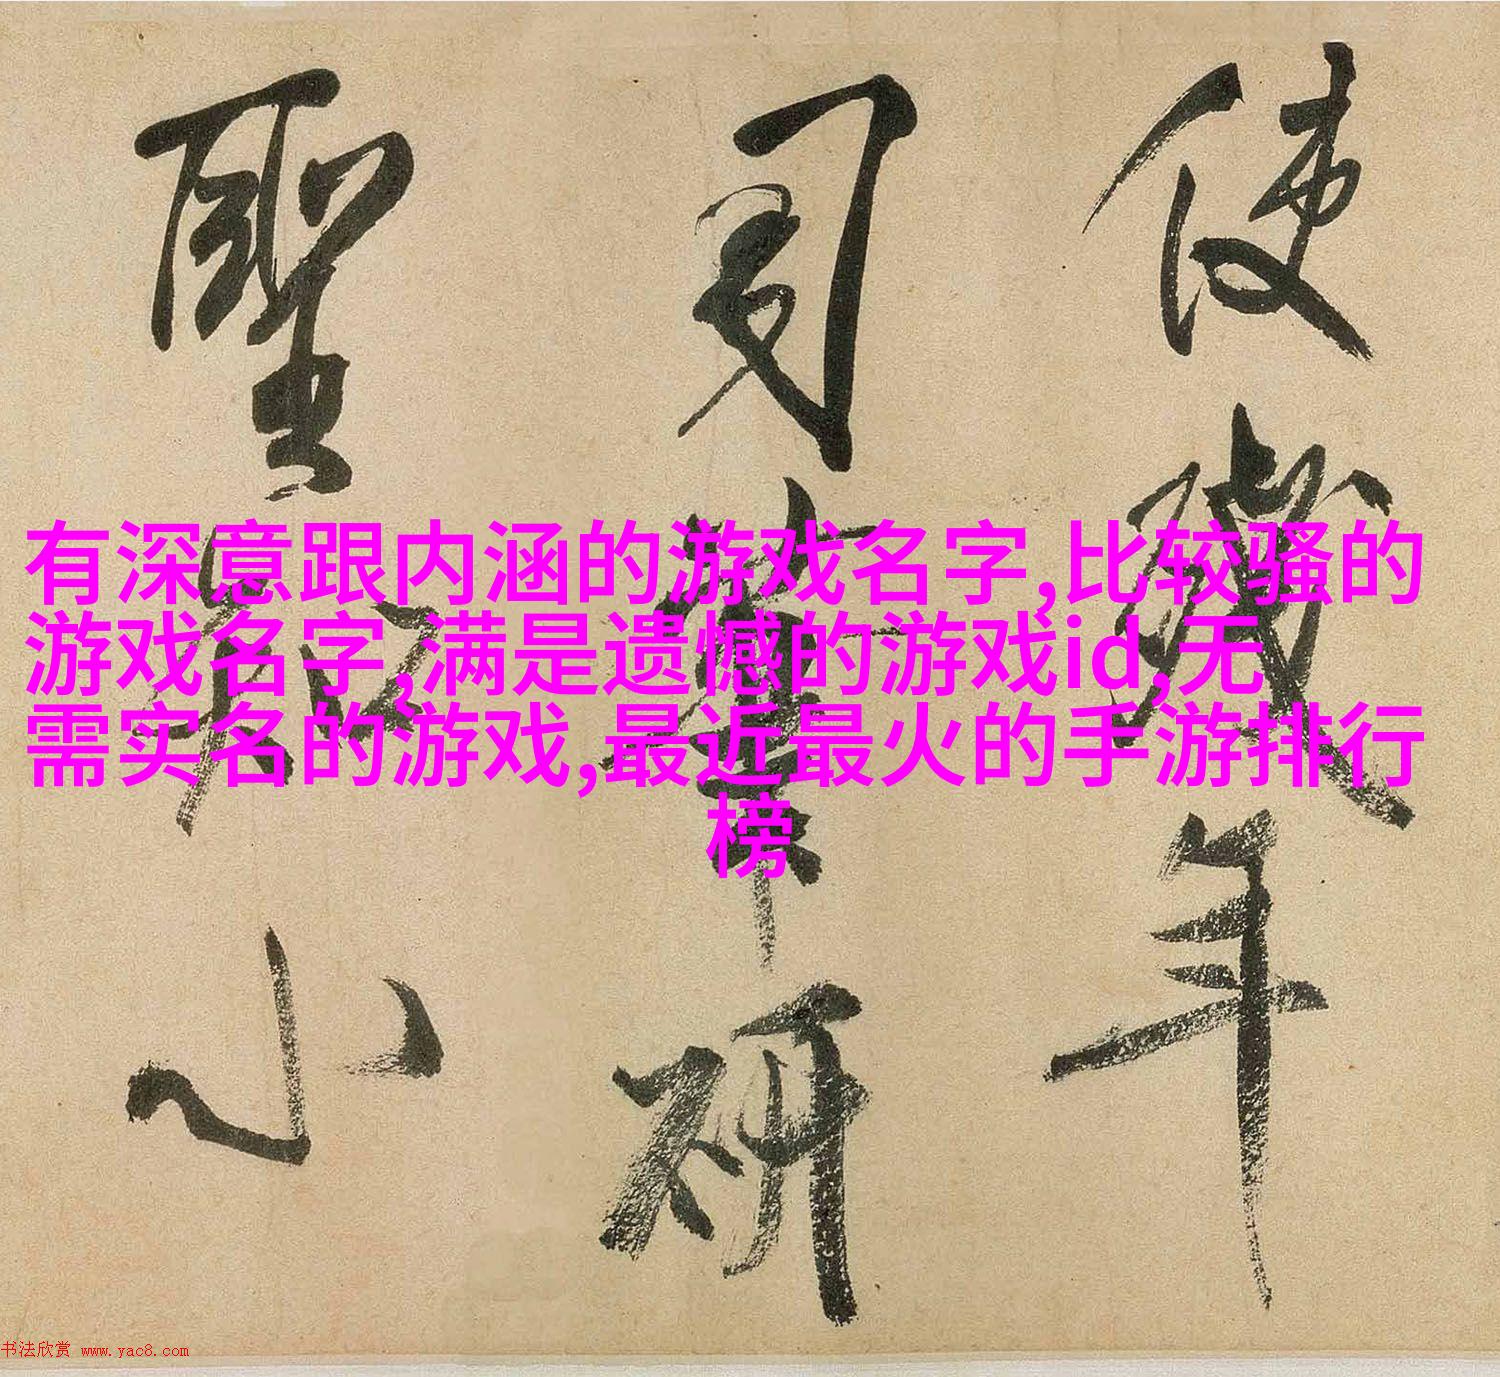 使殘年
聖
小
研
有深意跟内涵的游戏名字,比较骚的
游戏名字,满是遗憾的游戏id,无
需实名的游戏,最近最火的手游排行
榜
书法欣赏 www.yac8.com